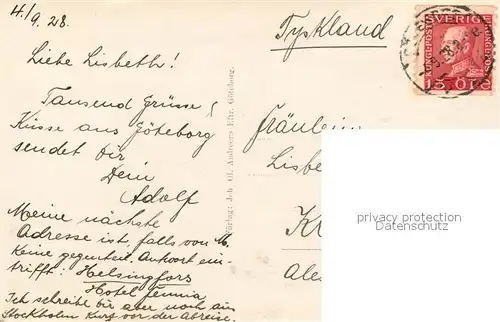 4./9.28.
Tyskland
SVERIGE
KUNGL·POST
15 ÖRE
Liebe Lisbeth!
Tausend Grüsse &
Küsse aus Göteborg
sendet dir
Dein
Adolf
Meine nächste
Adresse ist, falls von
keine gegenteil. Antwort ein-
trifft: Helsingfors
Hotel Fennia
Ich schreibe dir aber noch aus
Stockholm kurz vor der Abreise.
Förlag: Joh. Ol. Andreens Eftr. Göteborg.
Fräulein
Lisbe
K
privacy protection
Datenschutz